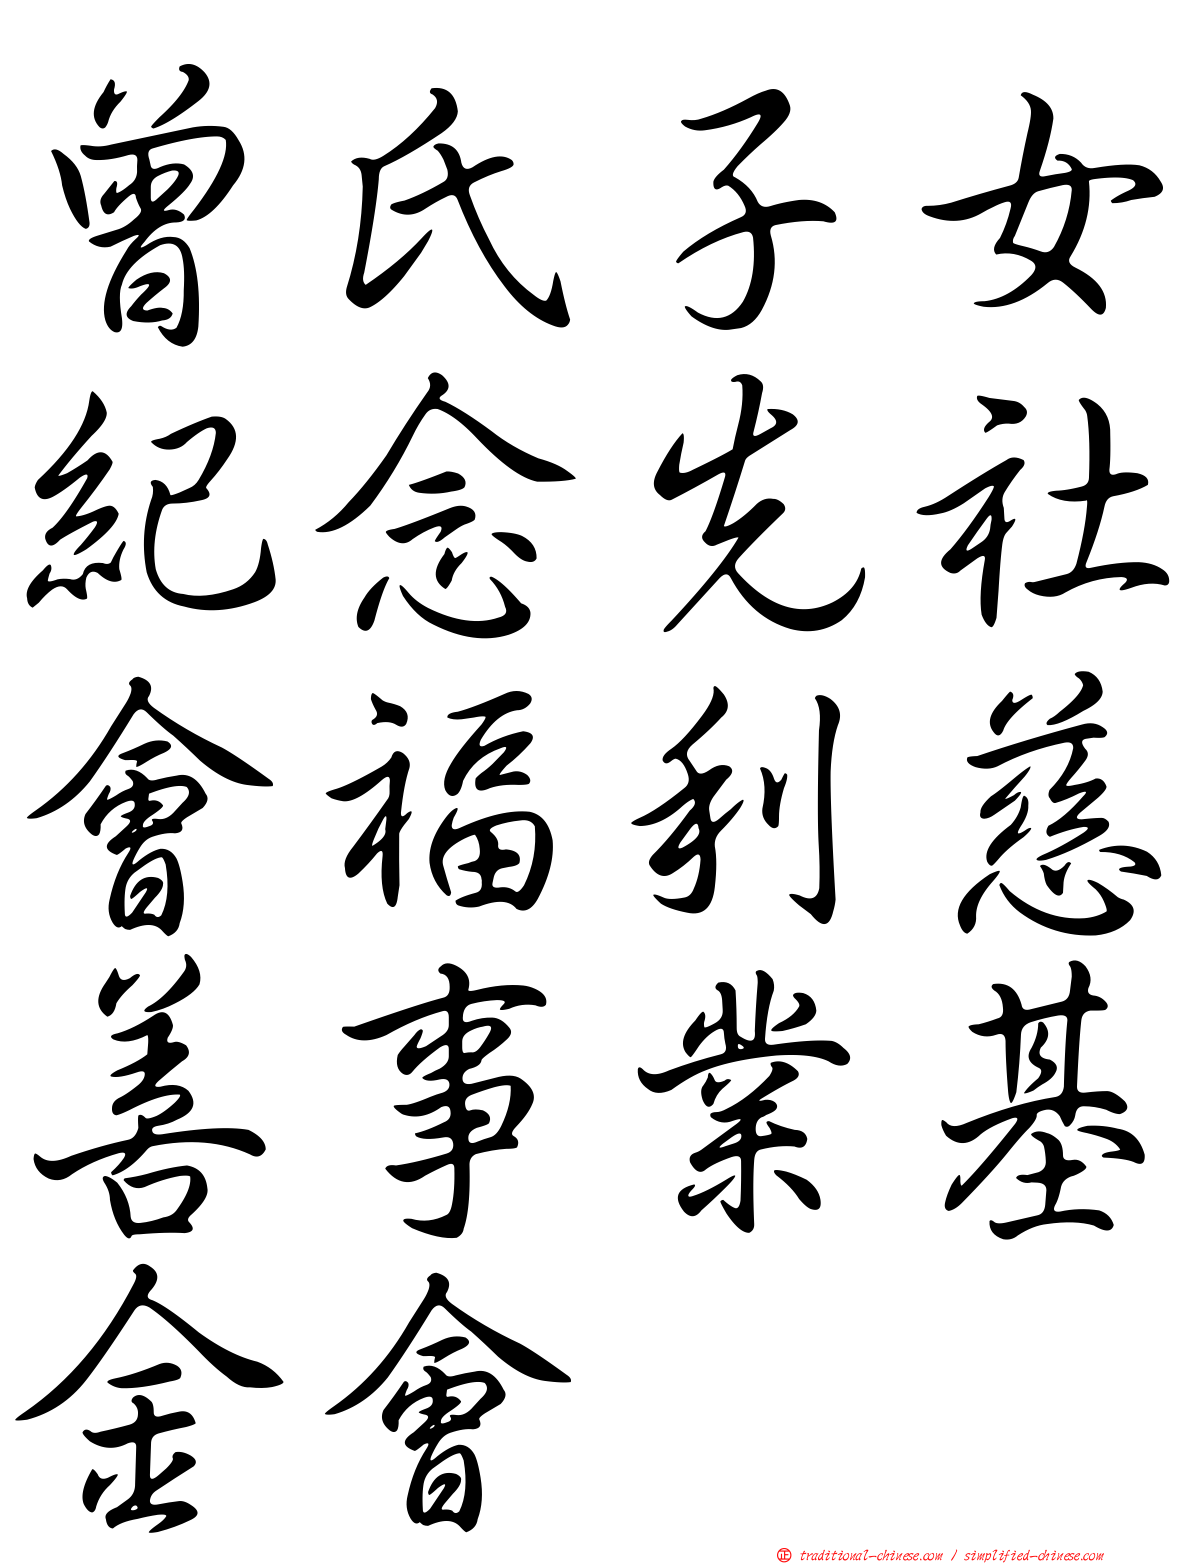 曾氏子女
紀念先社
會福利慈
善事業基
金會
正 traditional-chinese.com / simplified-chinese.com